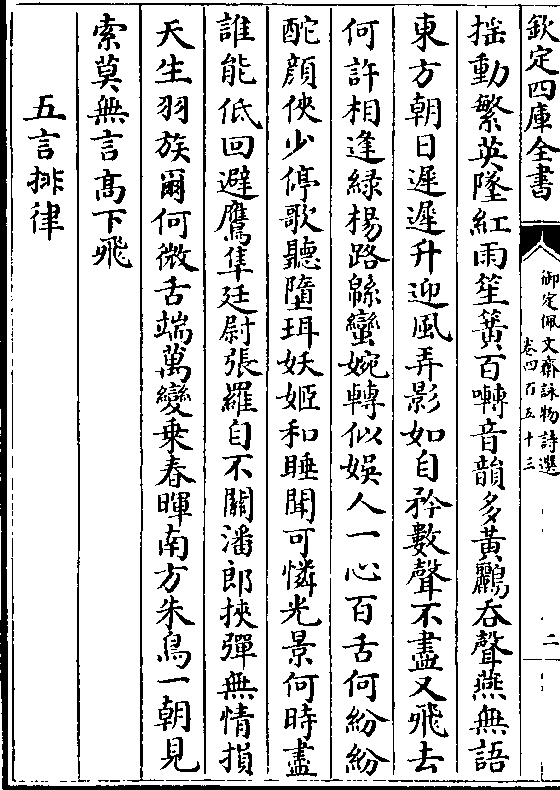 欽定四庫全書
御定佩文齋詠物詩選
卷四百五十三
二
揺動繁英墜紅雨笙簧百囀音韻多黃鸝吞聲燕無語
東方朝日遲遲升迎風弄影如自矜數聲不盡又飛去
何許相逢綠楊路緜蠻婉轉似娛人一心百舌何紛紛
酡顔俠少停歌聽墮珥妖姬和睡聞可憐光景何時盡
誰能低回避鷹隼廷尉張羅自不關潘郎挾彈無情損
天生羽族爾何微舌端萬變乗春暉南方朱鳥一朝見
索莫無言髙下飛
五言排律